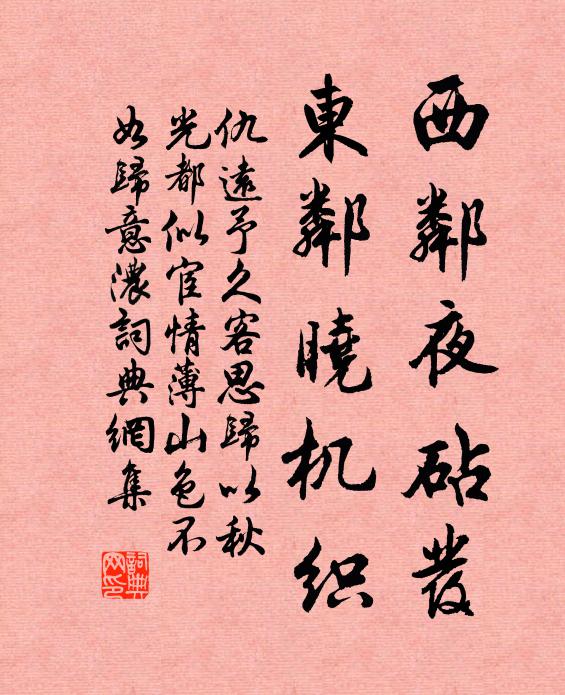 西鄰夜砧發
東鄰曉机织
仇遠予久客思歸以秋
光都似宦情薄山色不
如歸意濃詞典網集
詞典网印